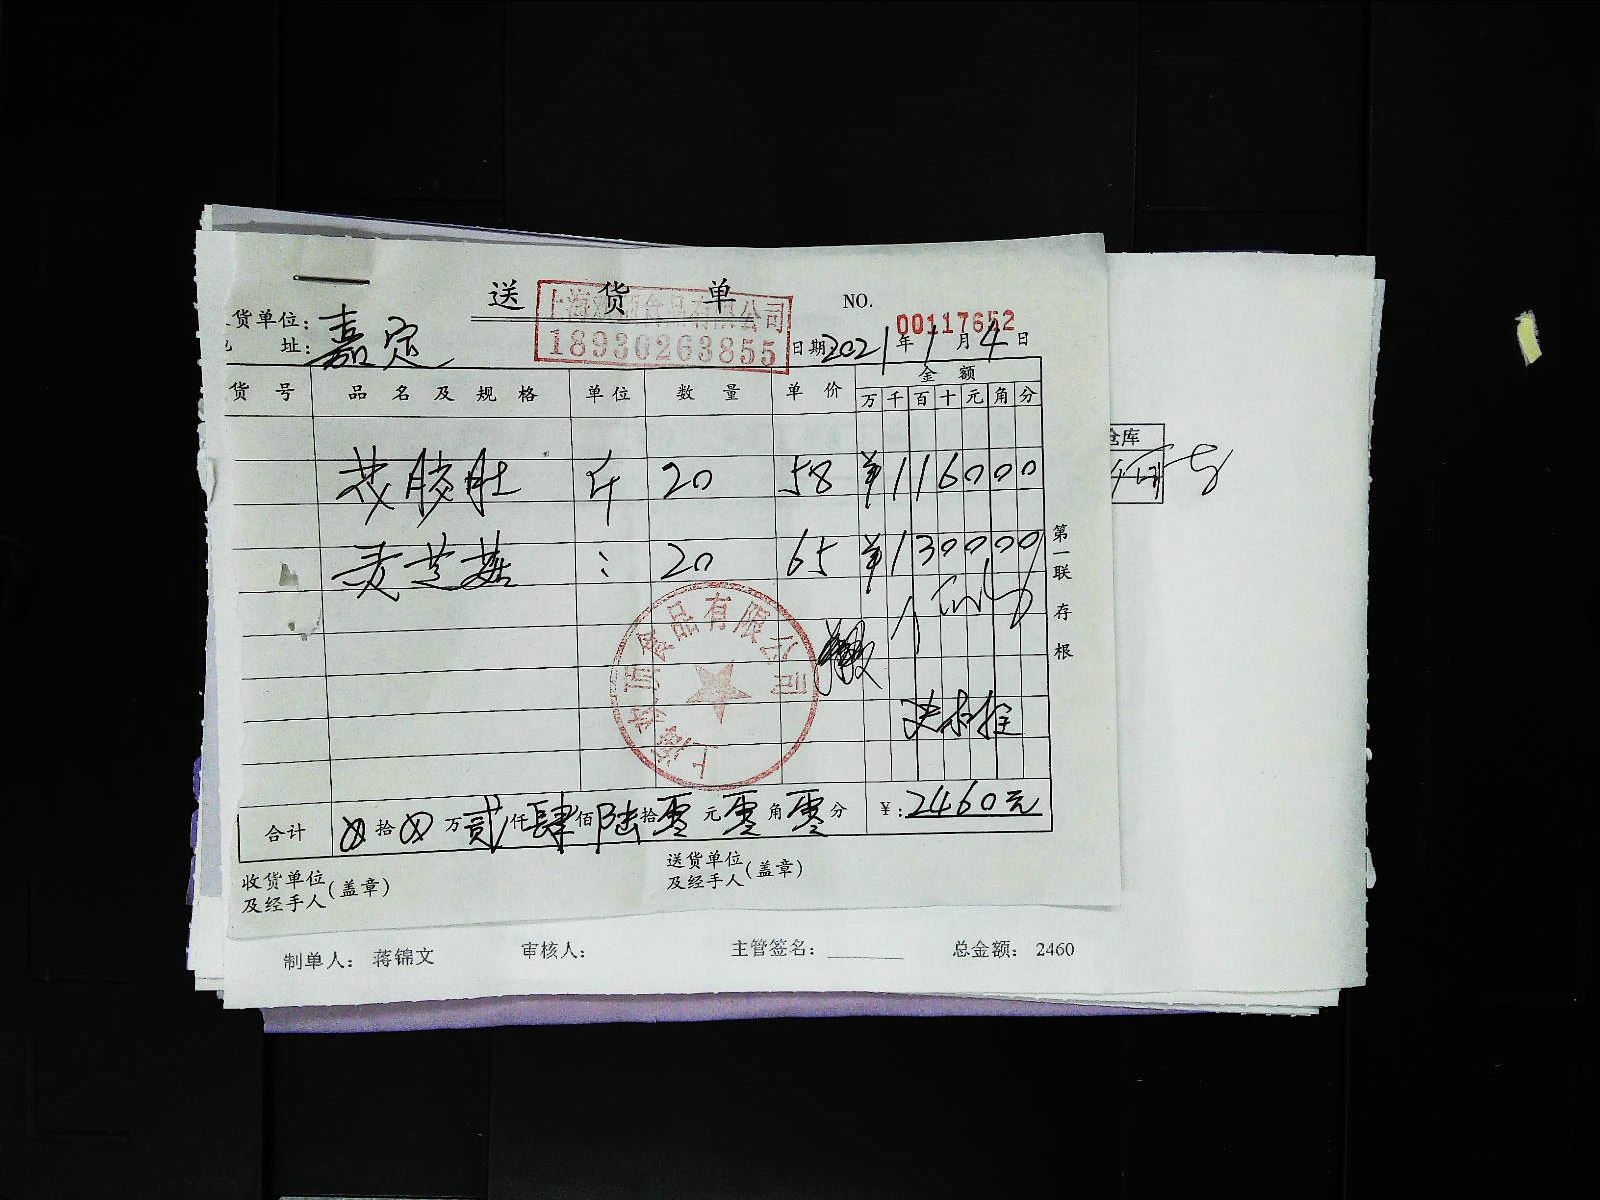 送货单
NO. 00117652
货单位：嘉定
址：
上海 食品有限公司
18930263855
日期2021年1月4日
货号 品名及规格 单位 数量 单价 金额
万千百十元角分
斤 20 58 ¥116000
20 65 ¥130000
食品有限公司
上海
第一联存根
仓库
合计 ⊗拾⊗万贰仟肆佰陆拾零元零角零分 ¥：2460元
收货单位及经手人(盖章) 送货单位及经手人(盖章)
制单人：蒋锦文 审核人： 主管签名： 总金额：2460